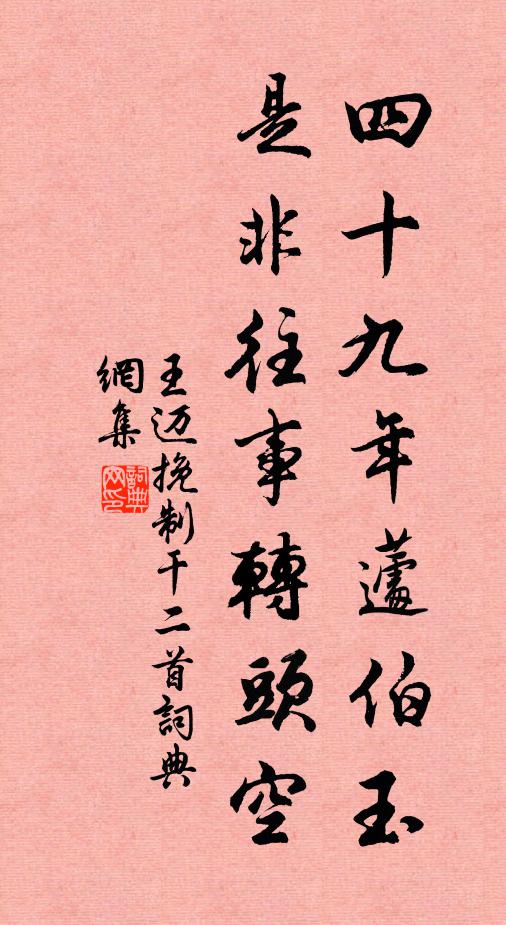 四十九年蘧伯玉
是非往事轉頭空
王迈挽制干二首詞典
網集
詞典
网印